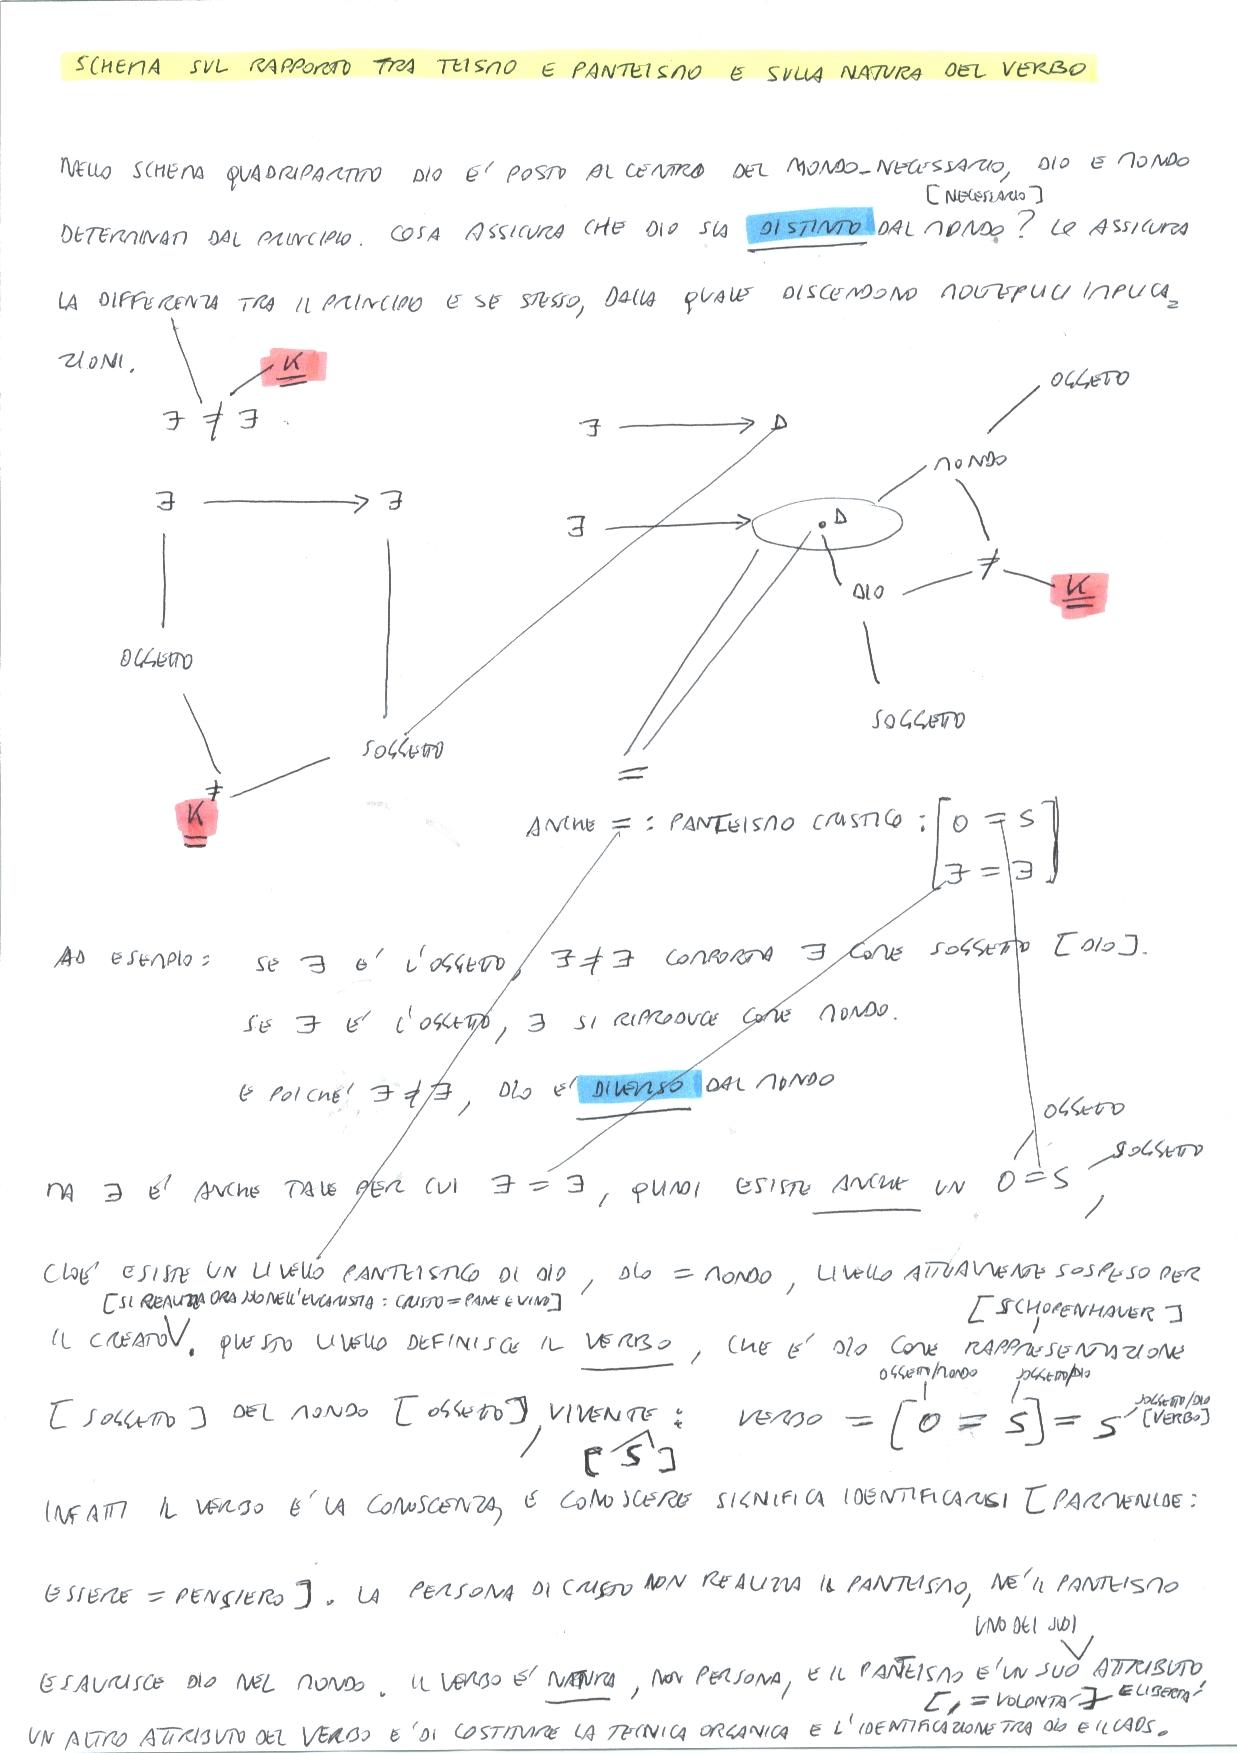 SCHEMA SUL RAPPORTO TRA TEISMO E PANTEISMO E SULLA NATURA DEL VERBO
NELLO SCHEMA QUADRIPARTITO DIO E' POSTO AL CENTRO DEL MONDO-NECESSARIO, DIO E MONDO
[NECESSARIO]
DETERMINATI DAL PRINCIPIO. COSA ASSICURA CHE DIO SIA DISTINTO DAL MONDO? LO ASSICURA
LA DIFFERENZA TRA IL PRINCIPIO E SE STESSO, DALLA QUALE DISCENDONO MOLTEPLICI IMPLICA=
ZIONI.
K
OGGETTO
∃ ≠ ∃
∃ → D
MONDO
∃ → ∃
∃ → . D
≠
DIO
K
OGGETTO
SOGGETTO
SOGGETTO
=
≠
K
ANCHE = : PANTEISMO CRISTICO : [O = S
∃ = ∃]
AD ESEMPIO: SE ∃ E' L'OGGETTO, ∃ ≠ ∃ COMPORTA ∃ COME SOGGETTO [DIO].
SE ∃ E' L'OGGETTO, ∃ SI RIPRODUCE COME MONDO.
E POICHE' ∃ ≠ ∃, DIO E' DIVERSO DAL MONDO
OGGETTO
SOGGETTO
MA ∃ E' ANCHE TALE PER CUI ∃ = ∃, QUINDI ESISTE ANCHE UN O = S,
CIOE' ESISTE UN LIVELLO PANTEISTICO DI DIO, DIO = MONDO, LIVELLO ATTUALMENTE SOSPESO PER
[SI REALIZZA ORA SOLO NELL'EUCARISTIA: CRISTO = PANE E VINO]
[SCHOPENHAUER]
IL CREATO. QUESTO LIVELLO DEFINISCE IL VERBO, CHE E' DIO COME RAPPRESENTAZIONE
OGGETTO/MONDO
SOGGETTO/DIO
SOGGETTO/DIO
[VERBO]
[SOGGETTO] DEL MONDO [OGGETTO], VIVENTE: VERBO = [O = S] = S
[S]
INFATTI IL VERBO E' LA CONOSCENZA, E CONOSCERE SIGNIFICA IDENTIFICARSI [PARMENIDE:
ESSERE = PENSIERO]. LA PERSONA DI CRISTO NON REALIZZA IL PANTEISMO, NE' IL PANTEISMO
UNO DEI SUOI
ESAURISCE DIO NEL MONDO. IL VERBO E' NATURA, NON PERSONA, E IL PANTEISMO E' UN SUO ATTRIBUTO
[, = VOLONTA'] E LIBERTA'
UN ALTRO ATTRIBUTO DEL VERBO E' DI COSTITUIRE LA TECNICA ORGANICA E L'IDENTIFICAZIONE TRA DIO E IL CAOS.